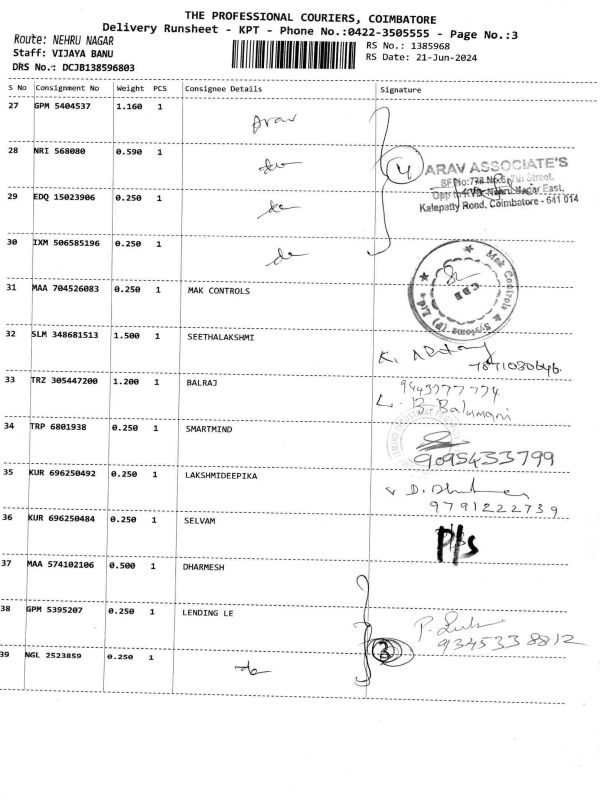 THE PROFESSIONAL COURIERS, COIMBATORE
Delivery Runsheet - KPT - Phone No.:0422-3505555 - Page No.:3
Route: NEHRU NAGAR
Staff: VIJAYA BANU
DRS No.: DCJB138596803
RS No.: 1385968
RS Date: 21-Jun-2024
S No Consignment No Weight PCS Consignee Details Signature
27 GPM 5404537 1.160 1 Arav
28 NRI 568080 0.590 1 do
4
ARAV ASSOCIATE'S
Opp to KVB, Nehru Nagar East,
Kalapatty Road, Coimbatore - 641 014
29 EDQ 15023906 0.250 1 do
30 IXM 506585196 0.250 1 do
31 MAA 704526083 0.250 1 MAK CONTROLS
Mak Controls & Systems (P) Ltd
CBE
32 SLM 348681513 1.500 1 SEETHALAKSHMI
33 TRZ 305447200 1.200 1 BALRAJ
9443777774
L. B. Balumani
34 TRP 6801938 0.250 1 SMARTMIND
9095433799
35 KUR 696250492 0.250 1 LAKSHMIDEEPIKA
9791222739
36 KUR 696250484 0.250 1 SELVAM P/s
37 MAA 574102106 0.500 1 DHARMESH
38 GPM 5395207 0.250 1 LENDING LE
9345338812
39 NGL 2523859 0.250 1 do 3